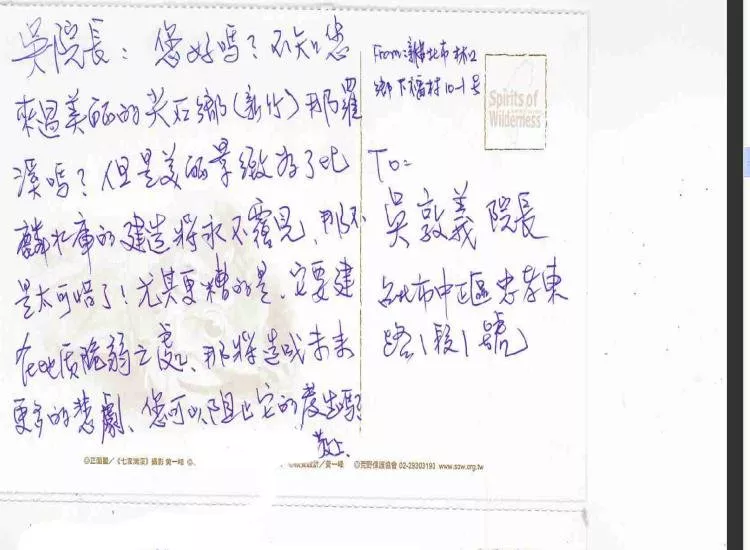 吳院長：您好嗎？不知您
來過美麗的尖石鄉(新竹)那羅
溪嗎？但是美麗景緻為了比
麟水庫的建造將永不覆見、那不
是太可惜了！尤其更糟的是、它要建
在地质脆弱之處、那將造成未來
更多的悲劇、您可以阻止它的產生嗎？
敬上、
From：新北市林口
鄉下福村10-1号
Spirits of
Wilderness
To：
吳敦義 院長
台北市中正區忠孝東
路1段1號
◎正面圖／《七家灣溪》攝影 黃一峰 ◎
／黃一峰 ◎荒野保護協會 02-29303193 www.sow.org.tw